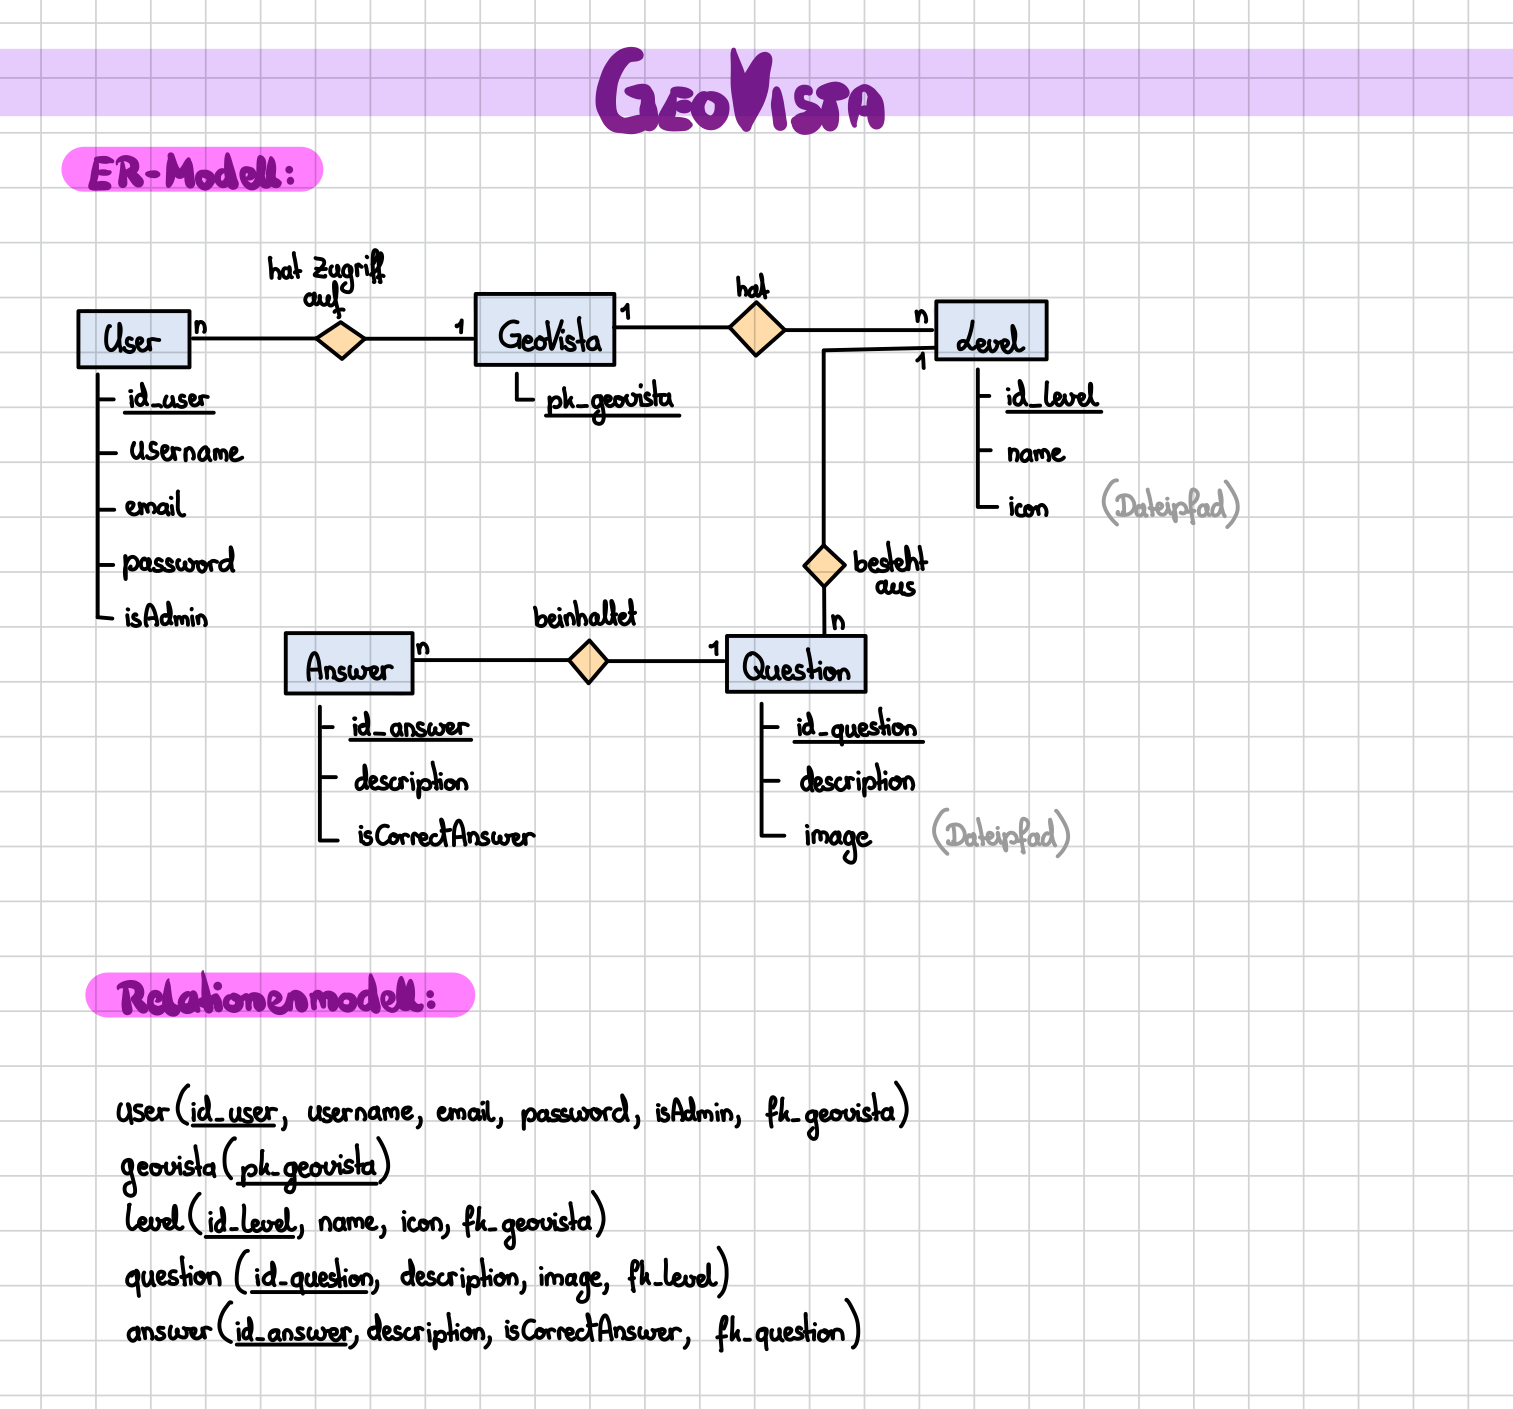 GeoVista
ER-Modell:
hat Zugriff
auf
hat
User
n
1
GeoVista
1
n
Level
1
id_user
username
email
password
isAdmin
pk_geovista
id_level
name
icon (Dateipfad)
besteht
aus
n
beinhaltet
Answer
n
1
Question
id_answer
description
isCorrectAnswer
id_question
description
image (Dateipfad)
Relationenmodell:
user (id_user, username, email, password, isAdmin, fk_geovista)
geovista (pk_geovista)
level (id_level, name, icon, fk_geovista)
question (id_question, description, image, fk_level)
answer (id_answer, description, isCorrectAnswer, fk_question)